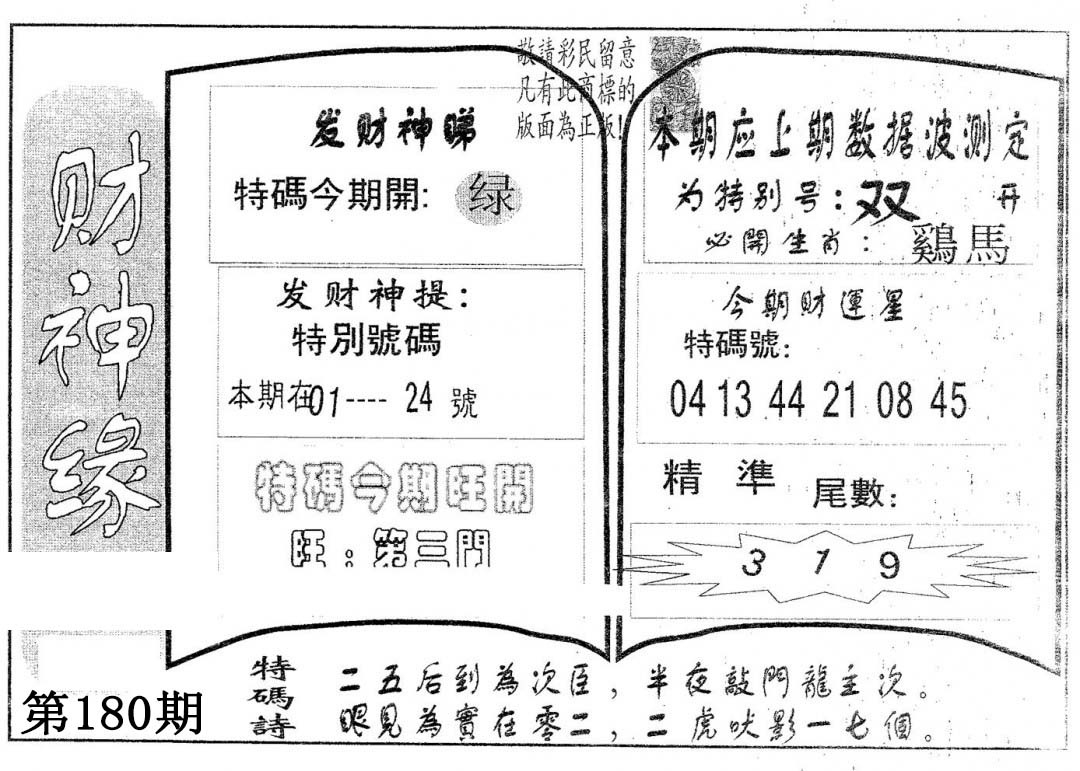 财神缘
第180期
敬請彩民留意
凡有此商標的
版面為正版!
发财神睇
特碼今期開:绿
发财神提:
特別號碼
本期在01----24號
特碼今期旺開
旺:第三門
本期应上期数据波测定
为特别号:双 开
必開生肖:鷄馬
今期财運星
特碼號:
04 13 44 21 08 45
精準 尾數:
3 1 9
特碼詩
二五后到為次臣,半夜敲門龍主次。
眼見為實在零二,二虎吠影一七個。